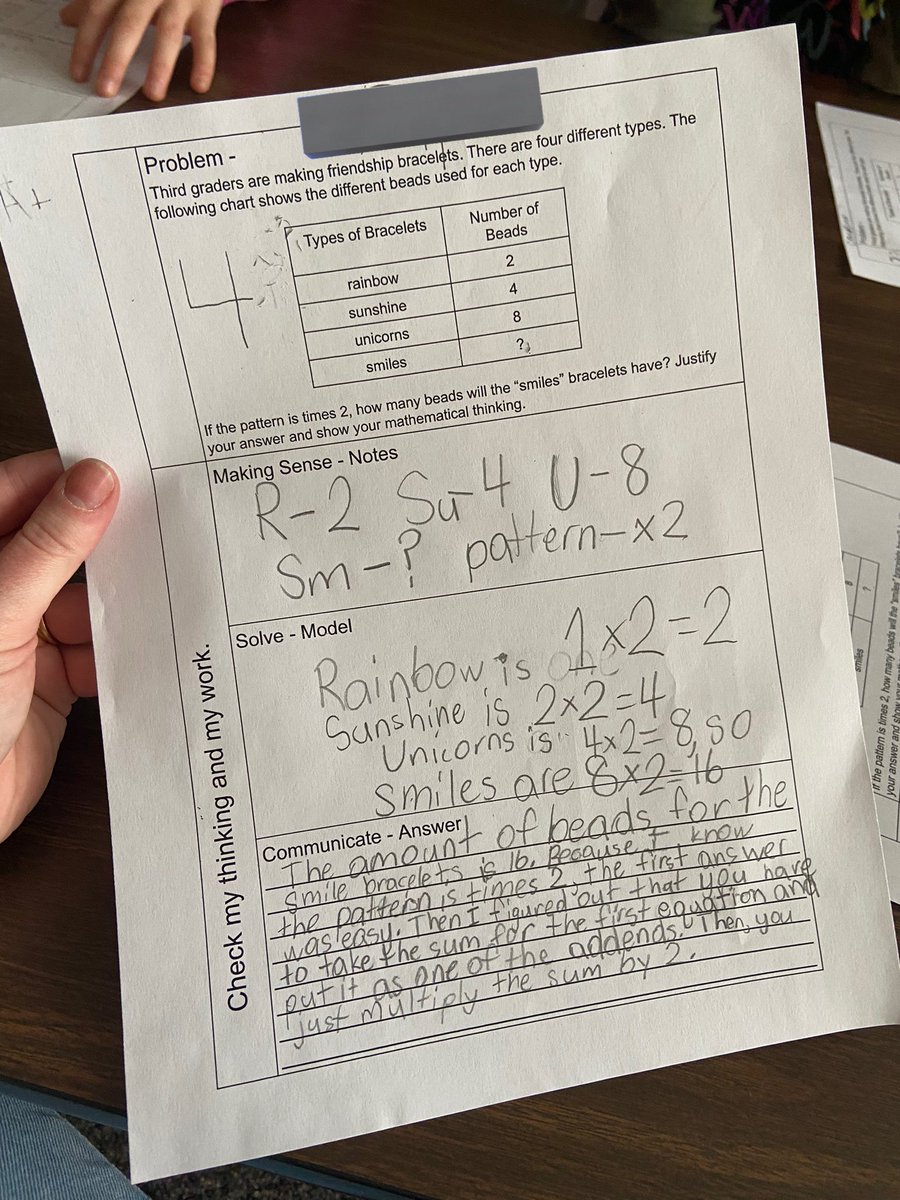 A+
Problem -
Third graders are making friendship bracelets. There are four different types. The
following chart shows the different beads used for each type.
4
Types of Bracelets
Number of
Beads
rainbow
2
sunshine
4
unicorns
8
smiles
?
If the pattern is times 2, how many beads will the “smiles” bracelets have? Justify
your answer and show your mathematical thinking.
Making Sense - Notes
R-2 Su-4 U-8
Sm-? pattern-x2
Check my thinking and my work.
Solve - Model
Rainbow is 1x2=2
Sunshine is 2x2=4
Unicorns is 4x2=8, so
smiles are 8x2=16
Communicate - Answer
The amount of beads for the
smile bracelets is 16. Because I know
the pattern is times 2, the first answer
was easy. Then I figured out that you have
to take the sum for the first equation and
put it as one of the addends. Then, you
just multiply the sum by 2.
smiles
?
8
If the pattern is times 2, how many beads will the
your answer and show